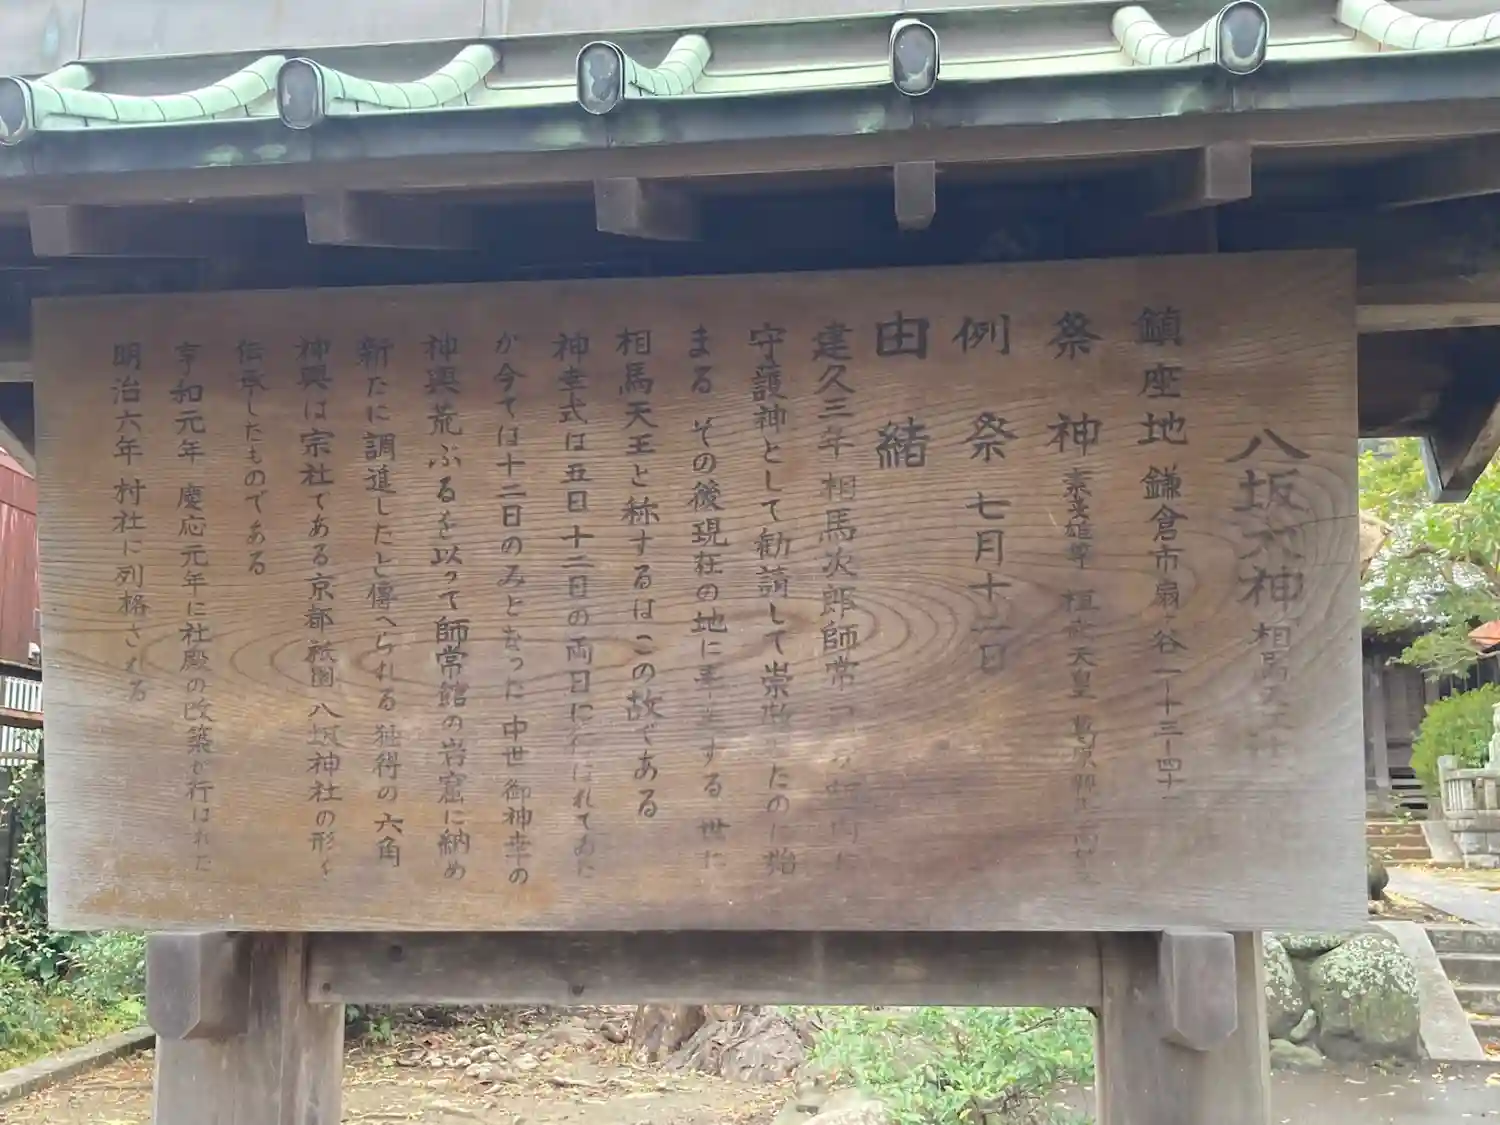 八坂大神 相馬天王社
鎮座地 鎌倉市扇ヶ谷一ー十三ー四十
祭神 素盞雄尊 桓武天皇 葛原親王 高望王
例祭 七月十二日
由緒
建久三年 相馬次郎師常 己の邸内に
守護神として勧請して崇敬したのに始
まる その後現在の地に奉遷する 世に
相馬天王と称するはこの故である
神幸式は五日十二日の両日に行はれてゐた
が今ては十二日のみとなった 中世 御神幸の
神輿荒ぶるを以って師常館の岩窟に納め
新たに調進したと傳へられる 独得の六角
神輿は宗社てある京都祇園八坂神社の形を
伝承したものである
享和元年 慶応元年に社殿の改築が行はれた
明治六年村社に列格される